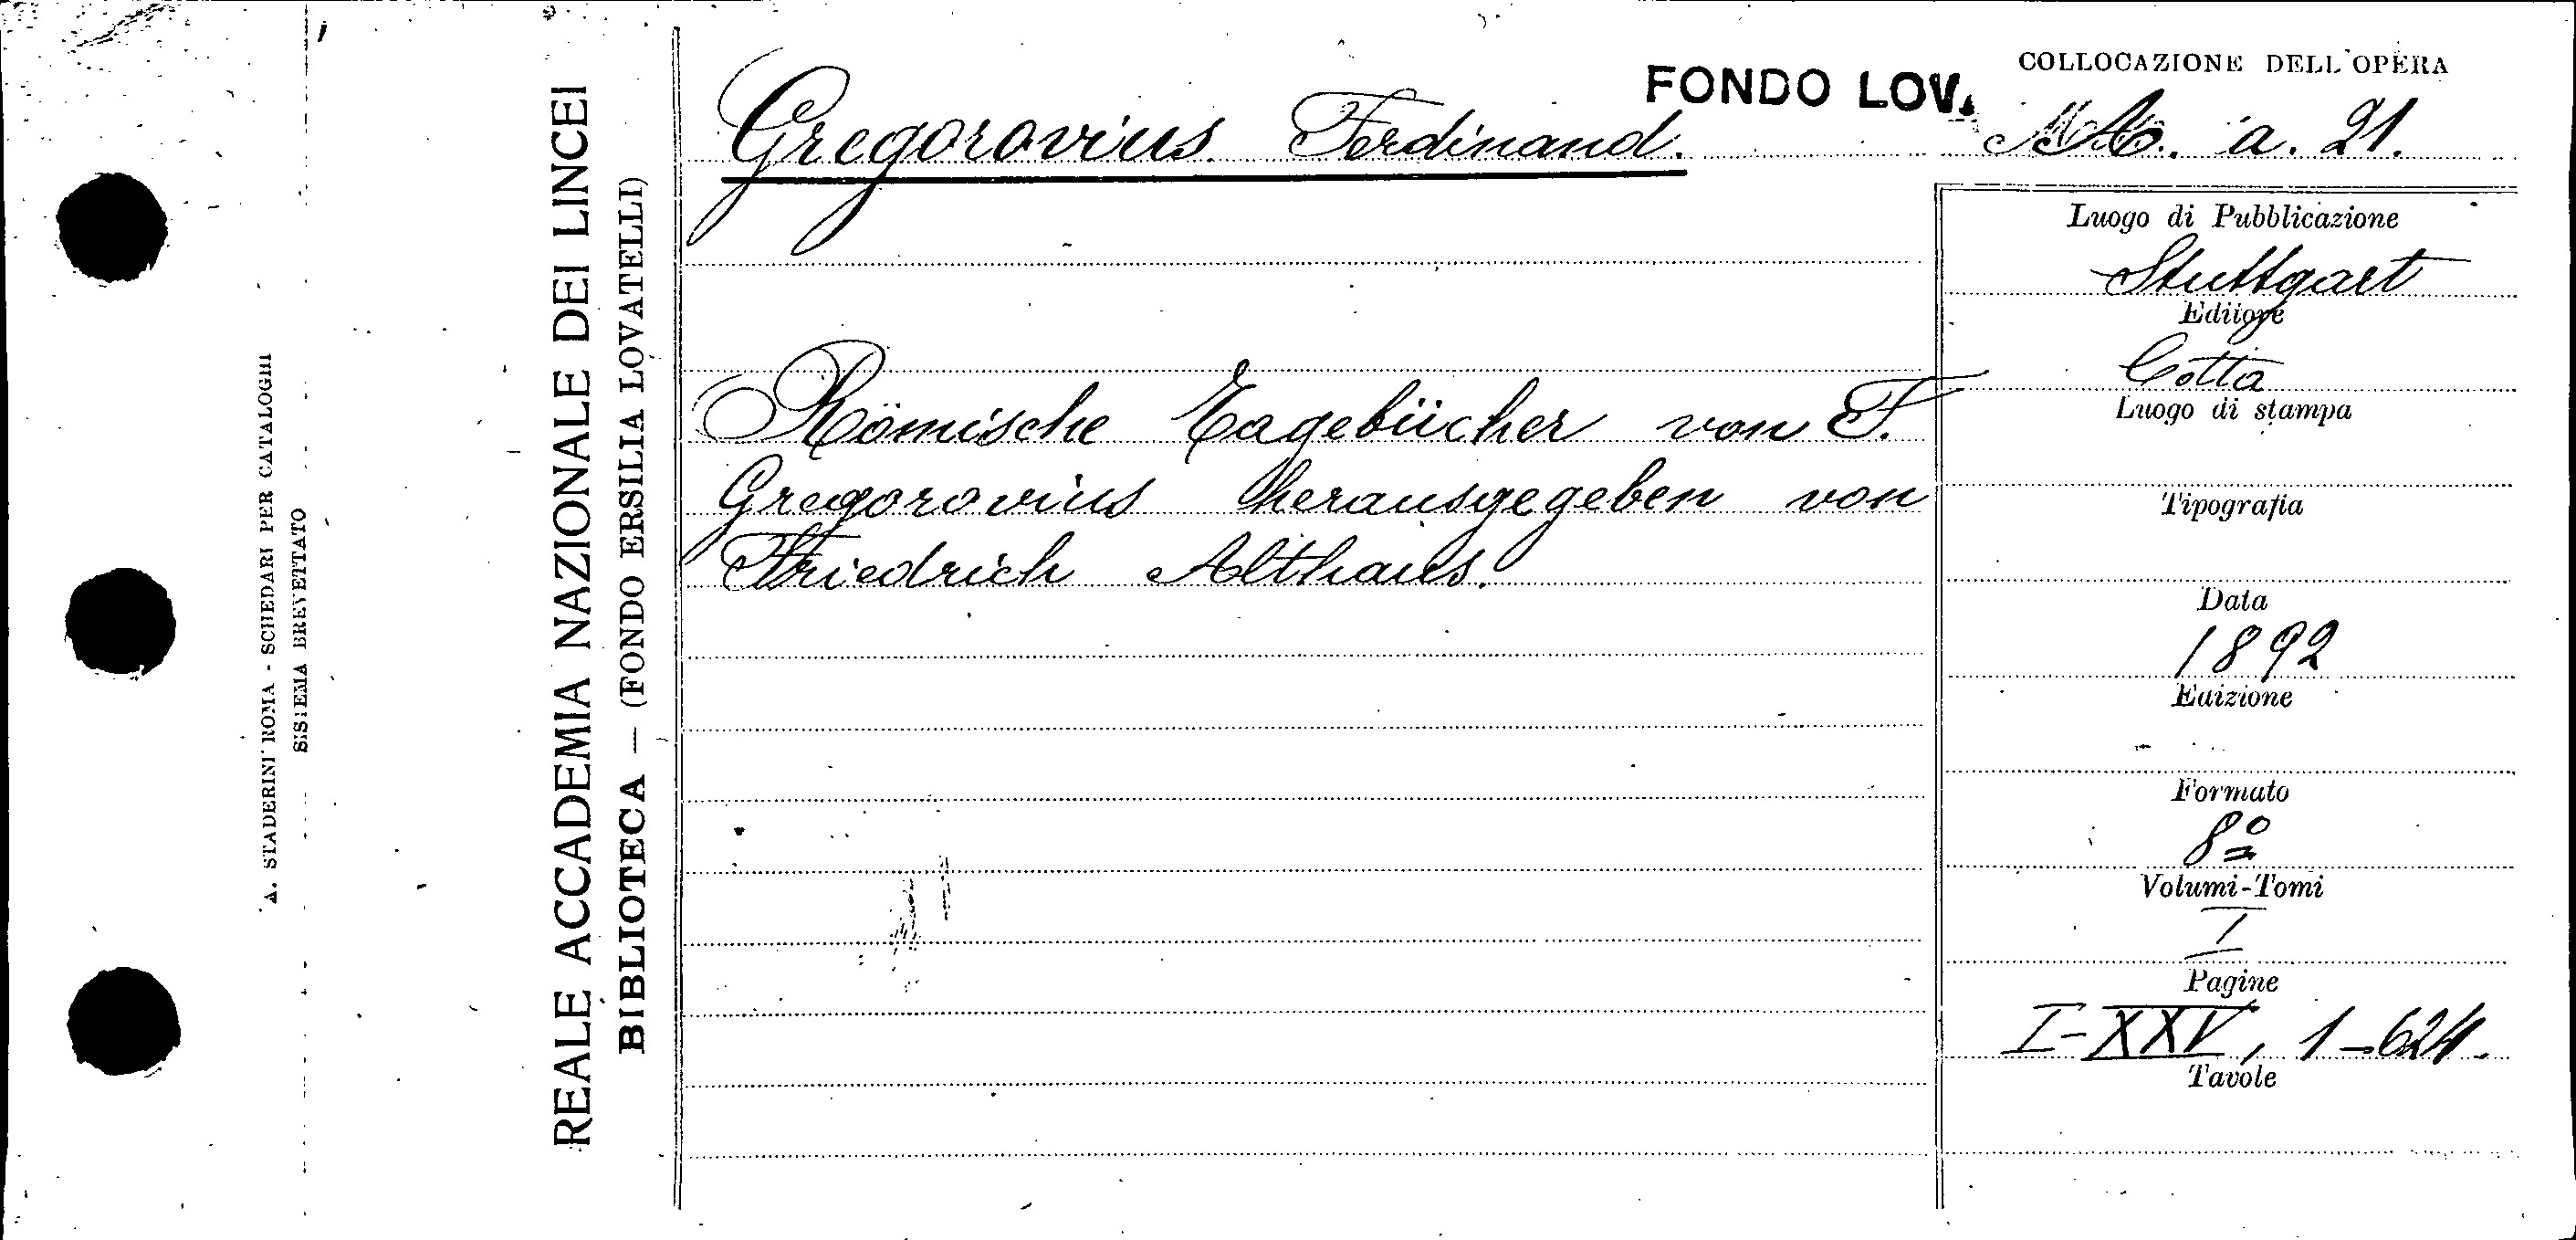 A. STADERINI ROMA - SCHEDARI PER CATALOGHI
SISTEMA BREVETTATO
REALE ACCADEMIA NAZIONALE DEI LINCEI
BIBLIOTECA — (FONDO ERSILIA LOVATELLI)
Gregorovius Ferdinand.
FONDO LOV.
COLLOCAZIONE DELL'OPERA
a. 21.
Römische Tagebücher von F.
Gregorovius herausgegeben von
Friedrich Althaus.
Luogo di Pubblicazione
Stuttgart
Editore
Cotta
Luogo di stampa
Tipografia
Data
1892
Edizione
Formato
8º
Volumi-Tomi
I
Pagine
I-XXV, 1-624.
Tavole